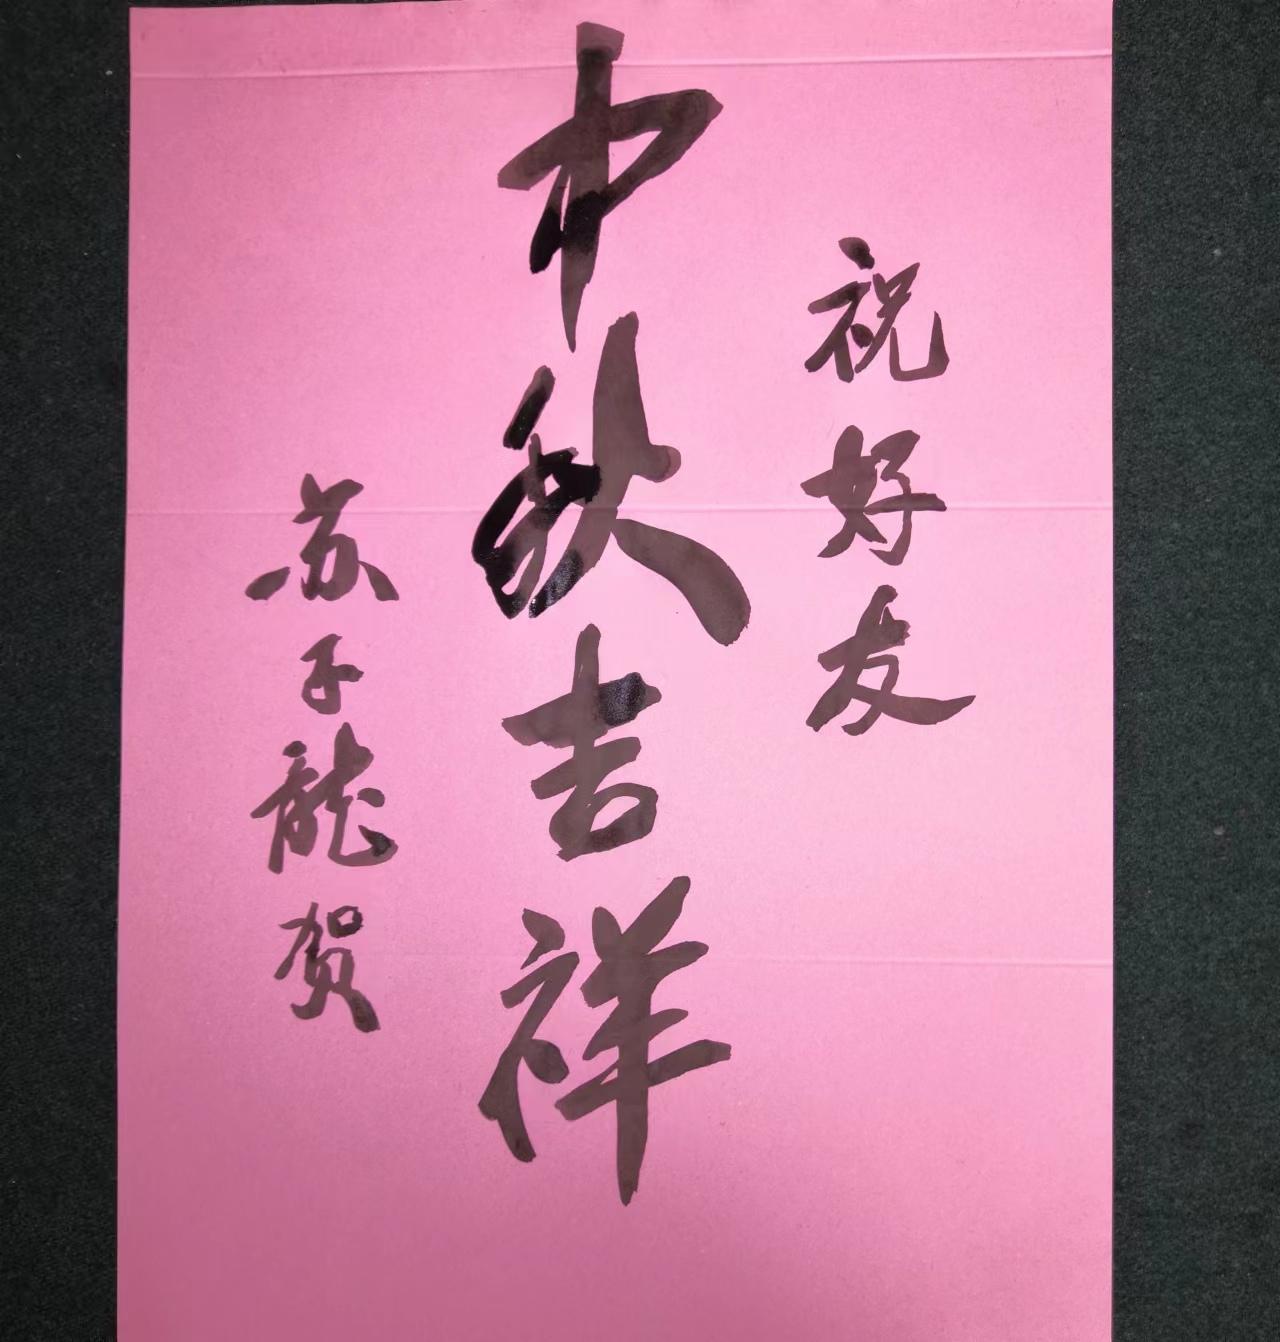 祝好友
中秋吉祥
苏子龍贺